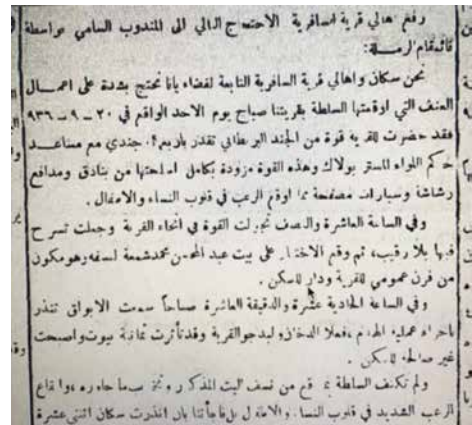 رفع اهالي قرية السافرية الاحتجاج التالي الى المندوب السامي بواسطة
قائمقام الرملة :
نحن سكان واهالي قرية السافرية التابعة لقضاء يافا نحتج بشدة على اعمال
العنف التي اوقعتها السلطة بقريتنا صباح يوم الاحد الواقع في ٢٠ – ٩ – ٩٣٦
فقد حضرت للقرية قوة من الجند البريطاني تقدر باربعماية جندي مع مساعد
حاكم اللواء المستر بولاك وهذه القوة مزودة بكامل اسلحتها من بنادق ومدافع
رشاشة وسيارات مصفحة مما اوقع الرعب في قلوب النساء والاطفال .
وفي الساعة العاشرة والنصف تجولت القوة في انحاء القرية وجعلت تسرح
فيها بلا رقيب، ثم وقع الاختيار على بيت عبد المحسن محمد شمعة لنسفه وهو مكون
من فرن عمومي للقرية ودار للسكن .
وفي الساعة الحادية عشرة والدقيقة العاشرة صباحاً سمعت الابواق تنذر
باجراء عملية الهدم، فعلا الدخان ولبد جو القرية وقد تأثرت ثمانية بيوت واصبحت
غير صالحة للسكن .
ولم تكتف السلطة بما وقع من نسف البيت المذكور وتخريب ما جاوره، وايقاع
الرعب الشديد في قلوب النساء والاطفال بل فاجأتنا بان انذرت سكان اثنتي عشرة